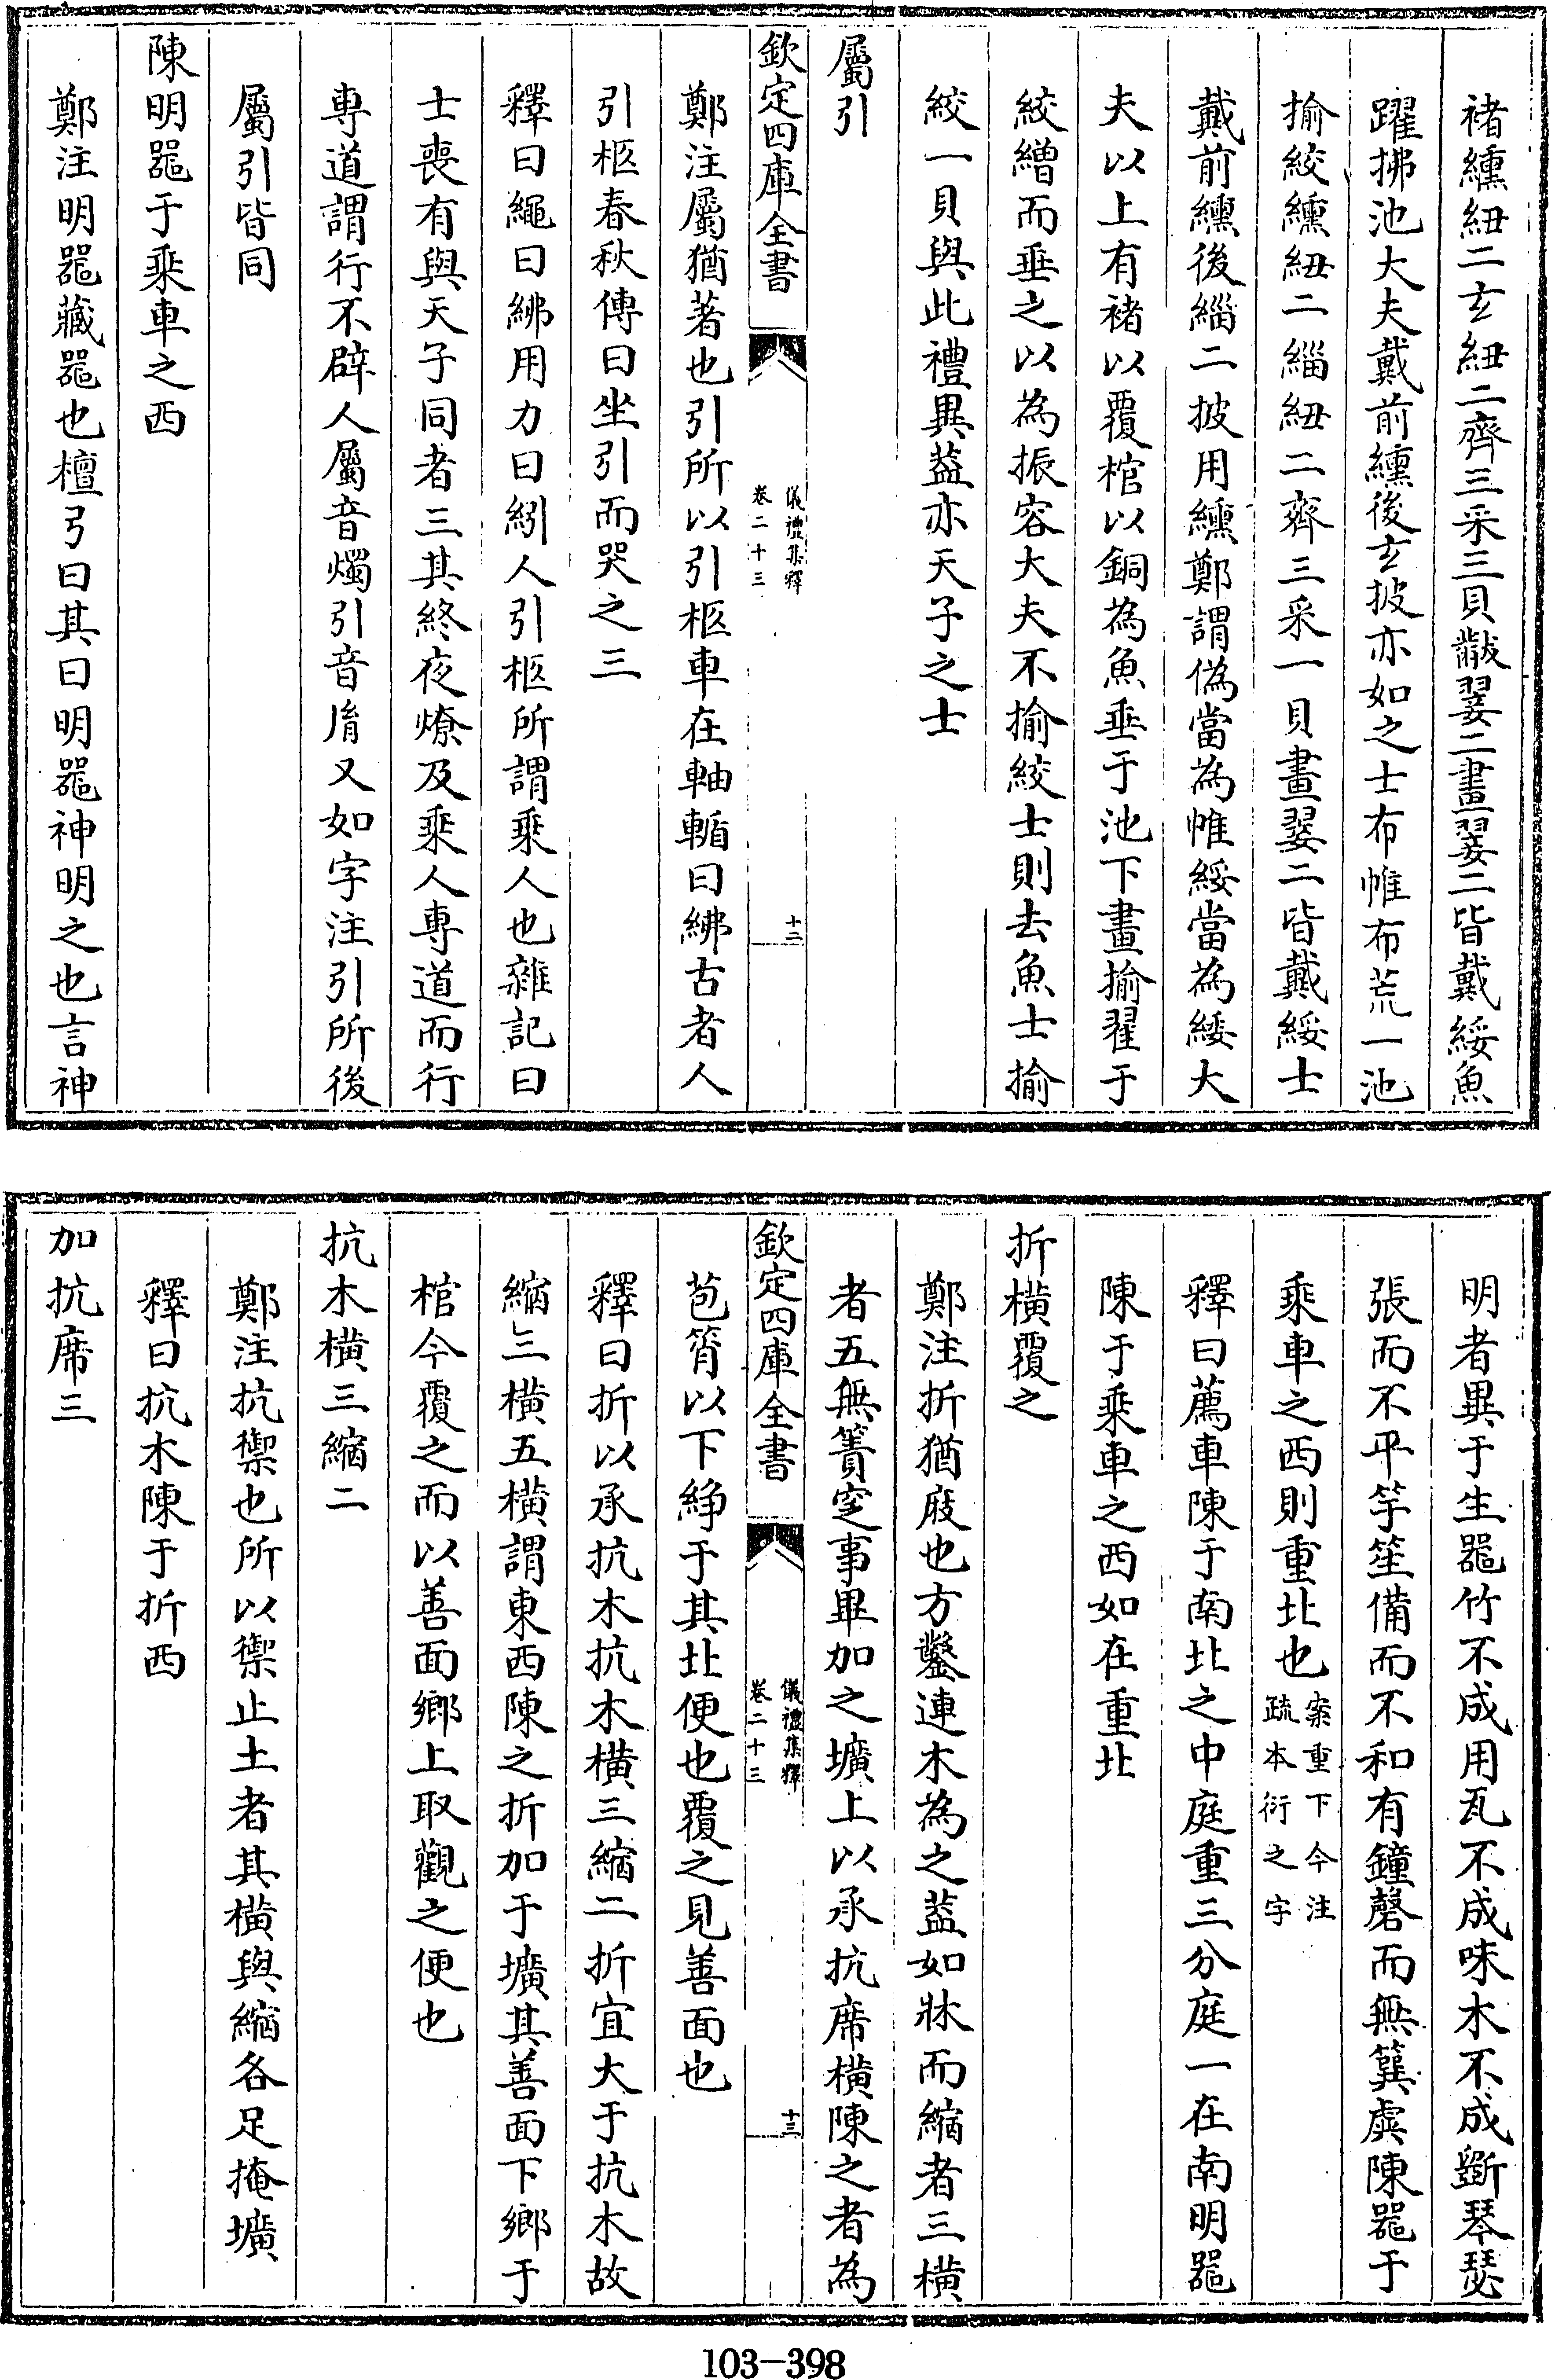 褚纁紐二玄紐二齊三采三貝黻翣二畫翣二皆戴綏魚
躍拂池大夫戴前纁後玄披亦如之士布帷布荒一池
揄絞纁紐二緇紐二齊三采一貝畫翣二皆戴綏士
戴前纁後緇二披用纁鄭謂偽當為帷綏當為緌大
夫以上有褚以覆棺以銅為魚垂于池下畫揄翟于
絞繒而垂之以為振容大夫不揄絞士則去魚士揄
絞一貝與此禮異葢亦天子之士
屬引
欽定四庫全書
儀禮集釋
卷二十三
十二
鄭注屬猶著也引所以引柩車在軸輴曰紼古者人
引柩春秋傳曰坐引而哭之三
釋曰繩曰紼用力曰紖人引柩所謂乘人也雜記曰
士喪有與天子同者三其終夜燎及乘人專道而行
專道謂行不辟人屬音燭引音胤又如字注引所後
屬引皆同
陳明器于乘車之西
鄭注明器藏器也檀弓曰其曰明器神明之也言神
明者異于生器竹不成用瓦不成味木不成斵琴瑟
張而不平竽笙備而不和有鐘磬而無簨虡陳器于
乘車之西則重北也
案重下今注
疏本衍之字
釋曰薦車陳于南北之中庭重三分庭一在南明器
陳于乘車之西如在重北
折橫覆之
鄭注折猶庪也方鑿連木為之葢如牀而縮者三橫
者五無簀窆事畢加之壙上以承抗席橫陳之者為
欽定四庫全書
儀禮集釋
卷二十三
十三
苞筲以下綪于其北便也覆之見善面也
釋曰折以承抗木抗木橫三縮二折宜大于抗木故
縮三橫五橫謂東西陳之折加于壙其善面下鄉于
棺今覆之而以善面鄉上取觀之便也
抗木橫三縮二
鄭注抗禦也所以禦止土者其橫與縮各足掩壙
釋曰抗木陳于折西
加抗席三
103-398